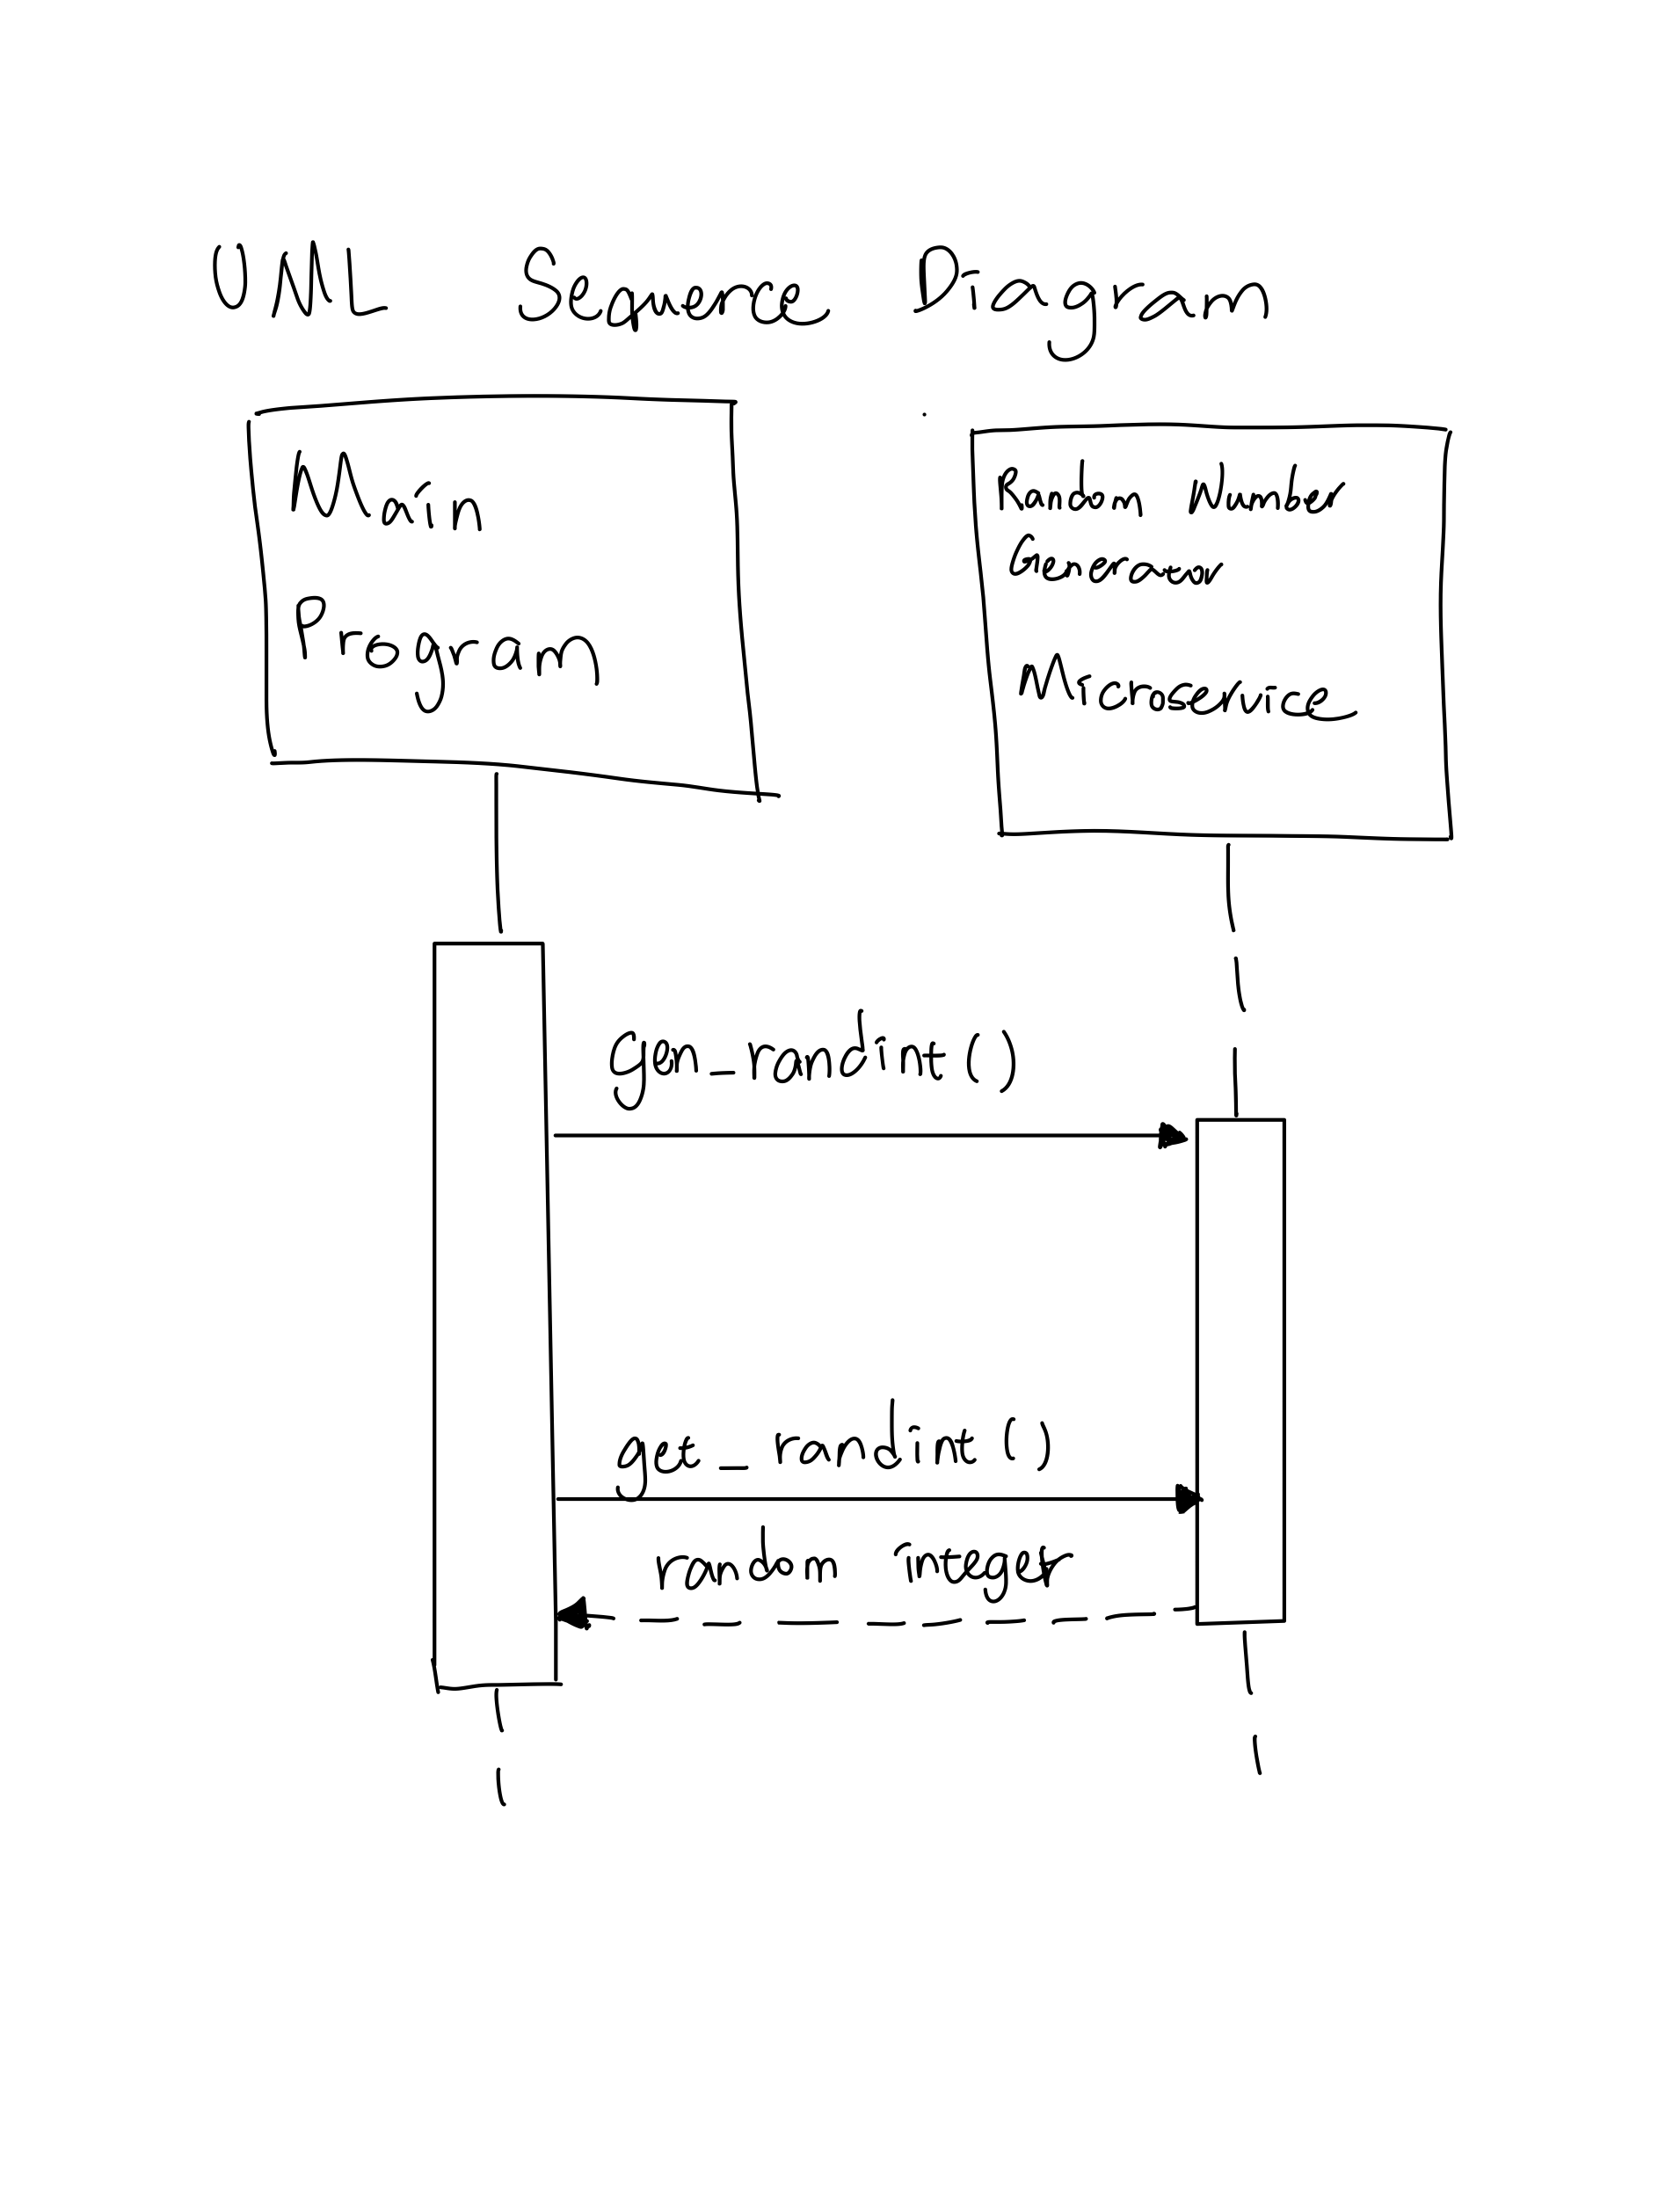 UML Sequence Diagram
Main
Program
Random Number
Generator
Microservice
gen_randint()
get_randint()
random integer